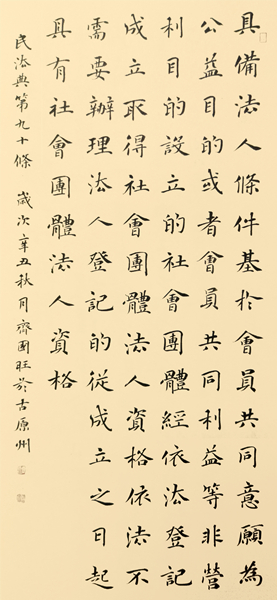 具備法人條件基於會員共同意願為
公益目的或者會員共同利益等非營
利目的設立的社會團體經依法登記
成立取得社會團體法人資格依法不
需要辦理法人登記的從成立之日起
具有社會團體法人資格
民法典第九十條 歲次辛丑秋月齊国旺於古原州